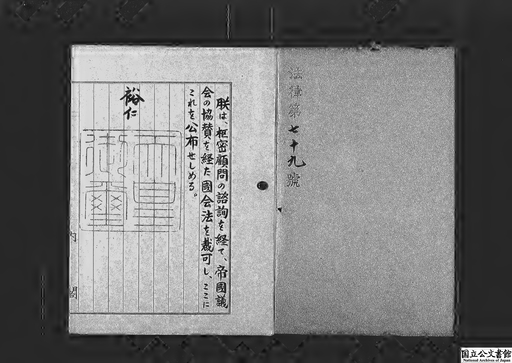 法律第七十九號
朕は、枢密顧問の諮詢を経て、帝國議
会の協賛を経た國会法を裁可し、ここに
これを公布せしめる。
裕仁
天皇
御璽
内閣
国立公文書館
National Archives of Japan